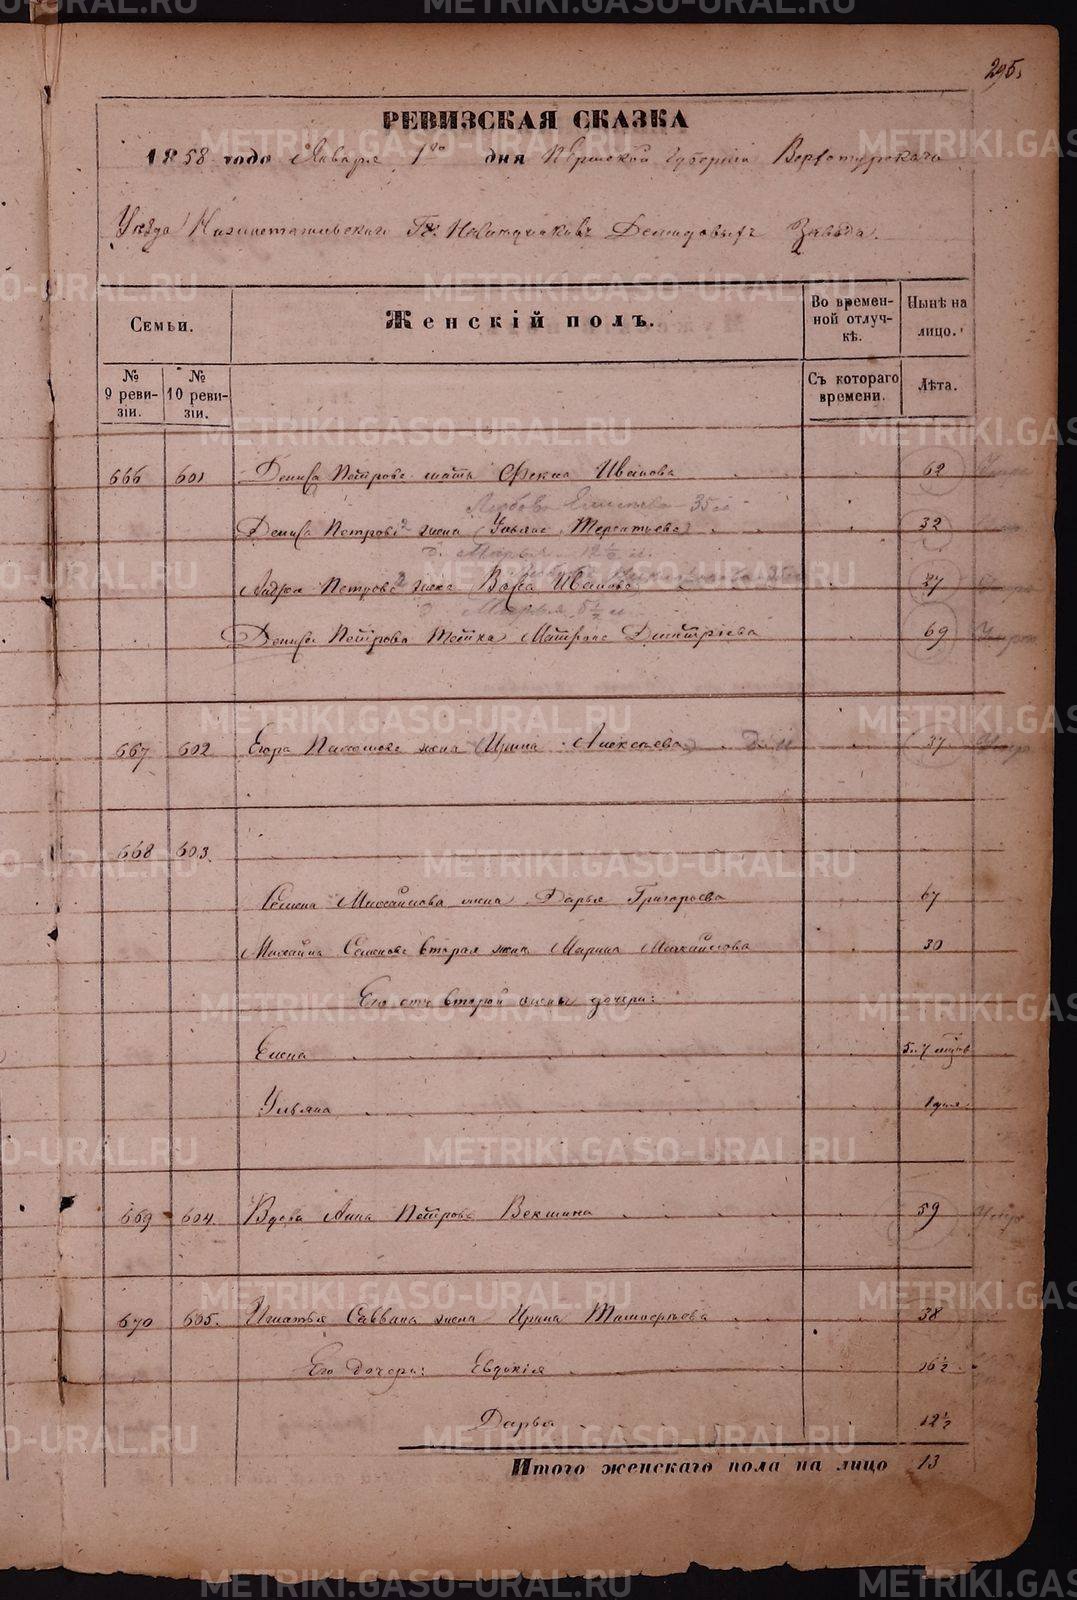 295.
РЕВИЗСКАЯ СКАЗКА
1858 года Января 1го дня Пермской Губернiи Верхотурскаго
Уѣзда Нижнетагильскаго Гг. Наслѣдниковъ Демидовыхъ Завода.
Семьи. Женскiй полъ. Во времен-ной отлуч-кѣ. Нынѣ на лицо.
№ 9 реви-зiи. № 10 реви-зiи. Съ котораго времени. Лѣта.
666 601 Дениса Петрова мать Фекла Иванова 62
35
Дениса Петрова 2 жена (Ульяна Терентьева) 32
Марья 12½
Андрея Петрова 2 жена (Варвара Иванова) 27
Марья 5½
Дениса Петрова Тетка Матрена Дмитрiева 69
667 602 Егора жена (Ирина Алексѣева) 37
668 603.
Семена Михайлова жена Дарья Григорьева 67
Михайла Семенова вторая жена Марина Михайлова 30
Его отъ второй жены дочери:
Елена 5..7 мѣсяц
Ульяна 1 дня.
669 604. Вдова Анна Петрова Векшина 59
670 605. Игнатья Саввина жена Ирина Тимофѣева 38
Его дочери: Евдокiя 16½
Дарья 12½
Итого женскаго пола на лицо 13
METRIKI.GASO-URAL.RU